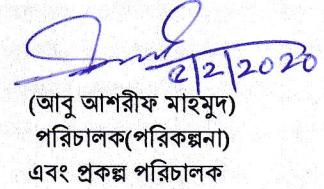 ২/২/২০২০
(আবু আশরীফ মাহমুদ)
পরিচালক(পরিকল্পনা)
এবং প্রকল্প পরিচালক